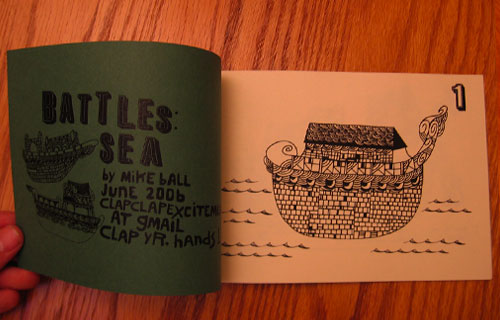 BATTLES:
SEA
by MIKE BALL
JUNE 2006
CLAPCLAPEXCITEME
AT GMAIL
CLAP YR. hands!
1